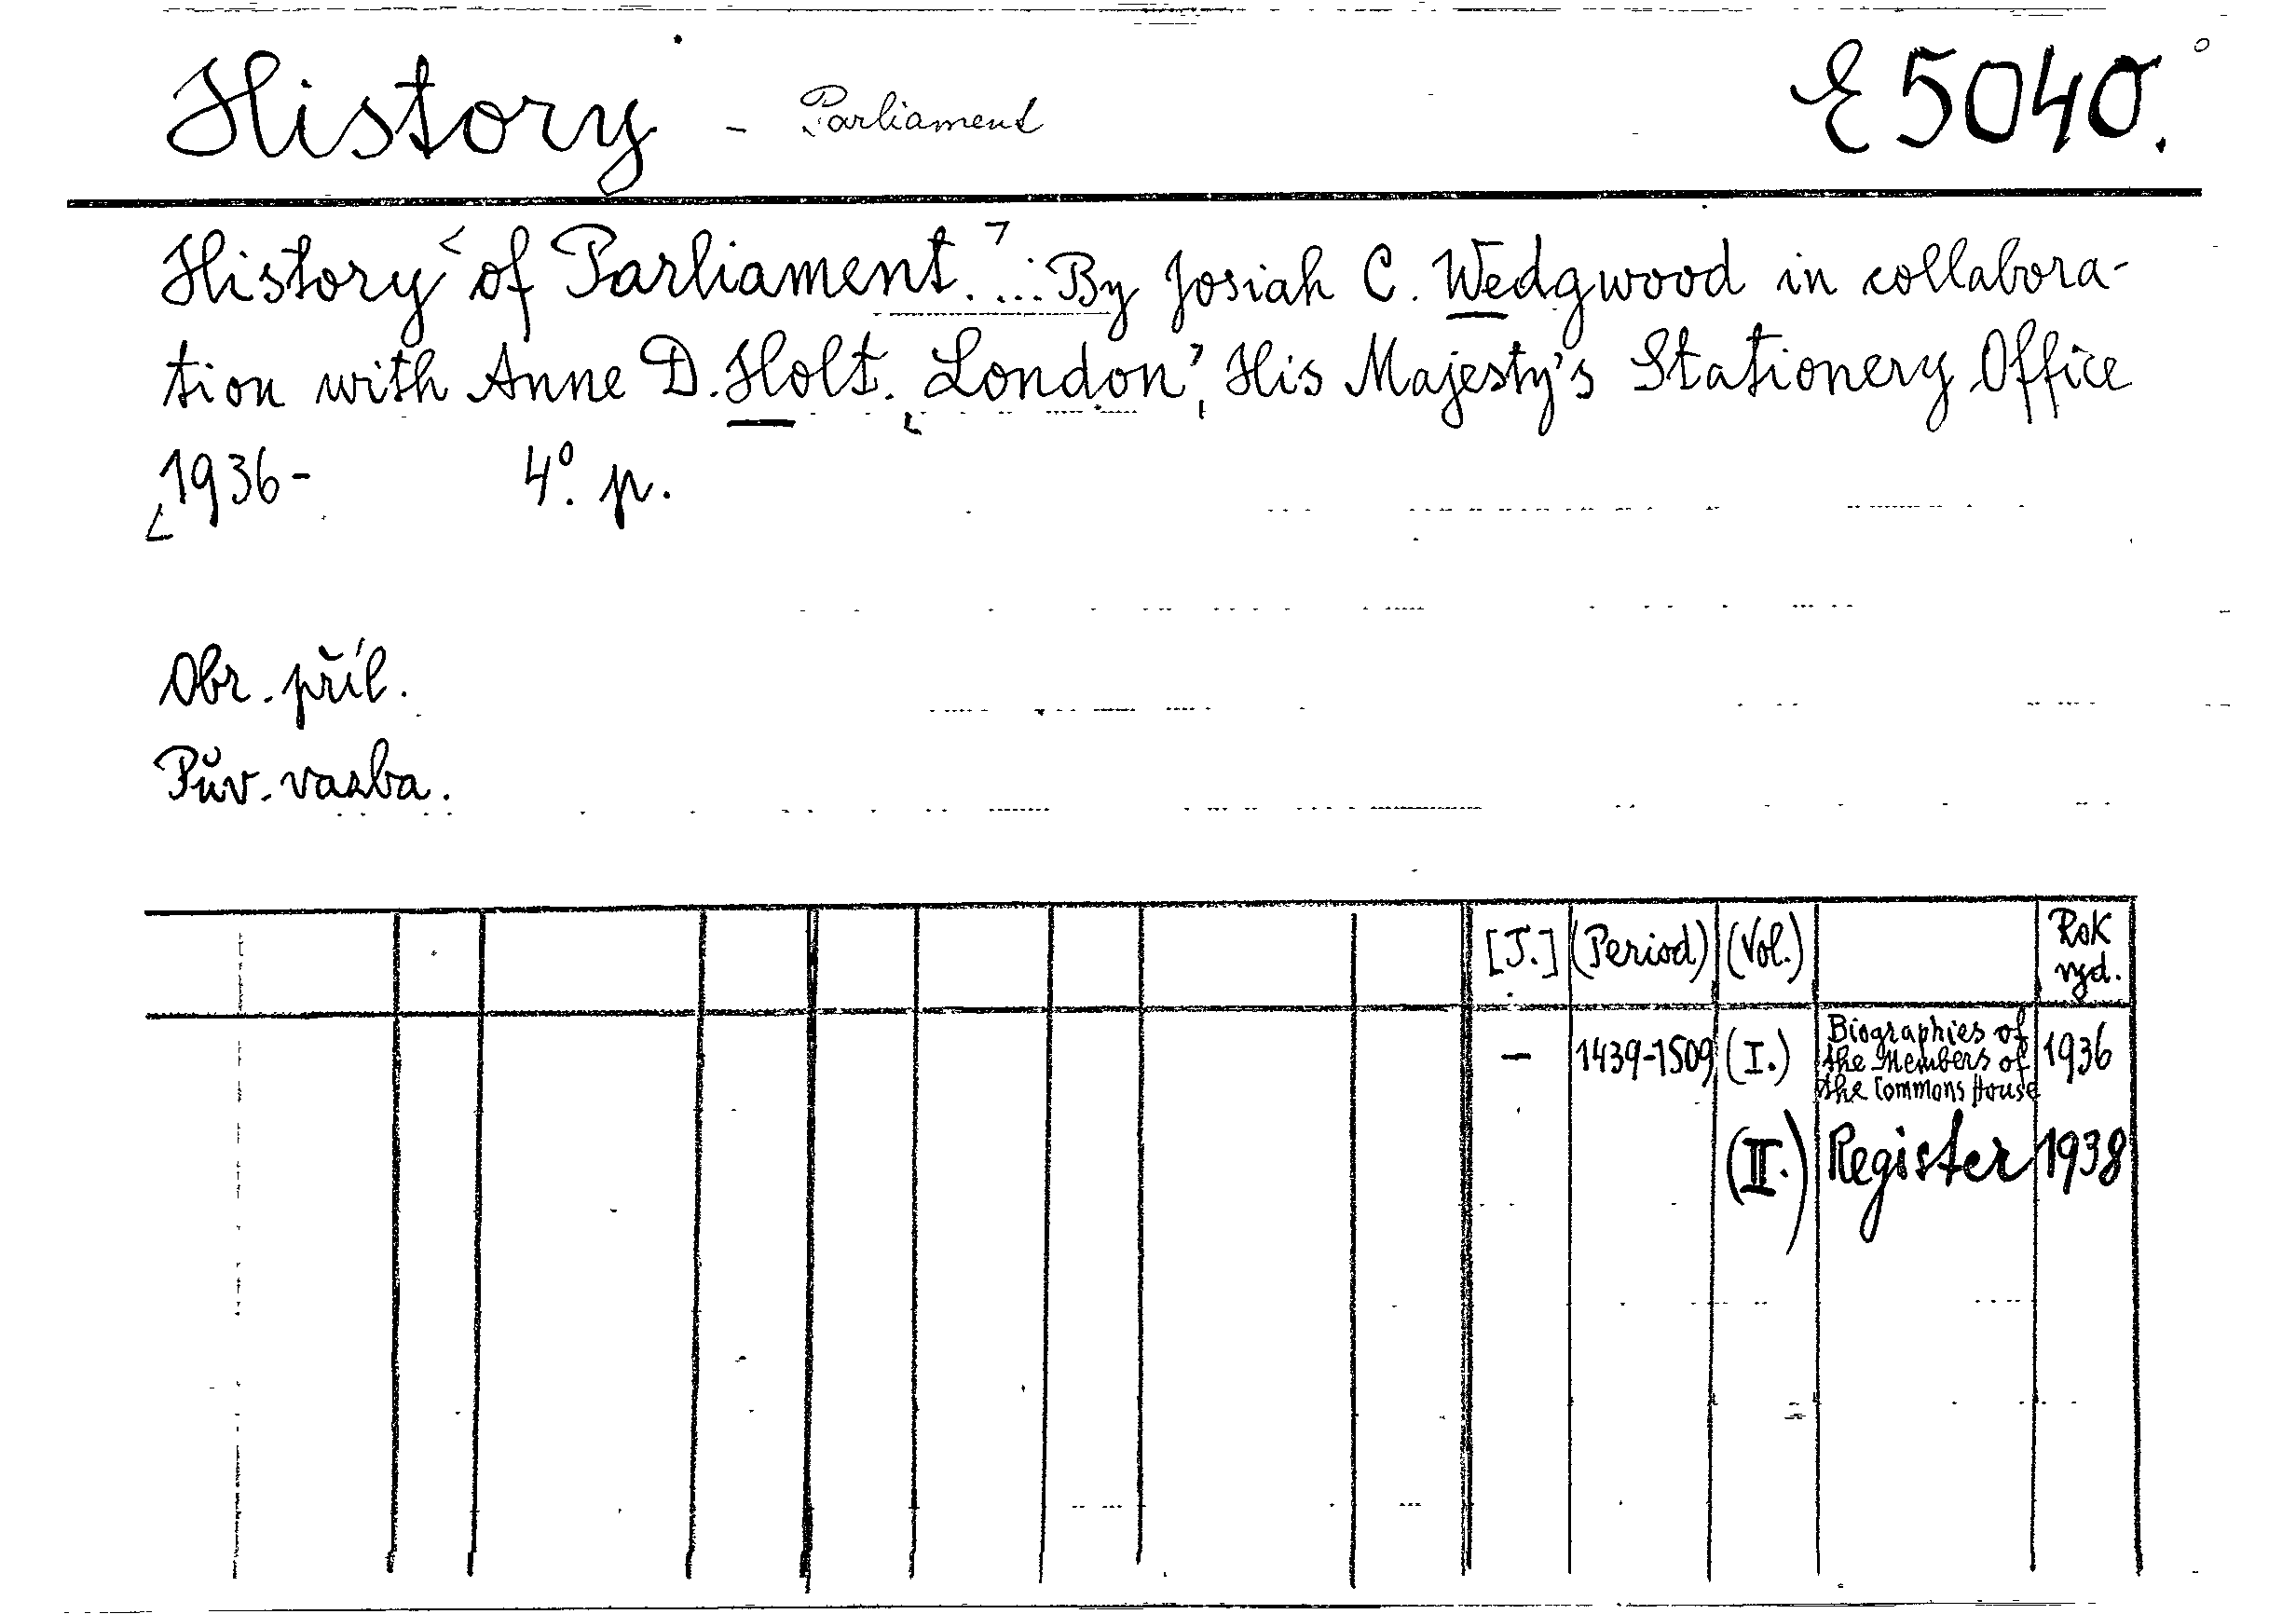 History - Parliament E 5040.
History of Parliament. ... By Josiah C. Wedgwood in collabora-
tion with Anne D. Holt. London, His Majesty's Stationery Office
1936- 4°. p.
Obr. příl.
Pův. vazba.
[T.] (Period) (Vol.) Rok
vyd.
— 1439-1509 (I.) Biographies of
the Members of
the Commons House 1936
(II.) Register 1938